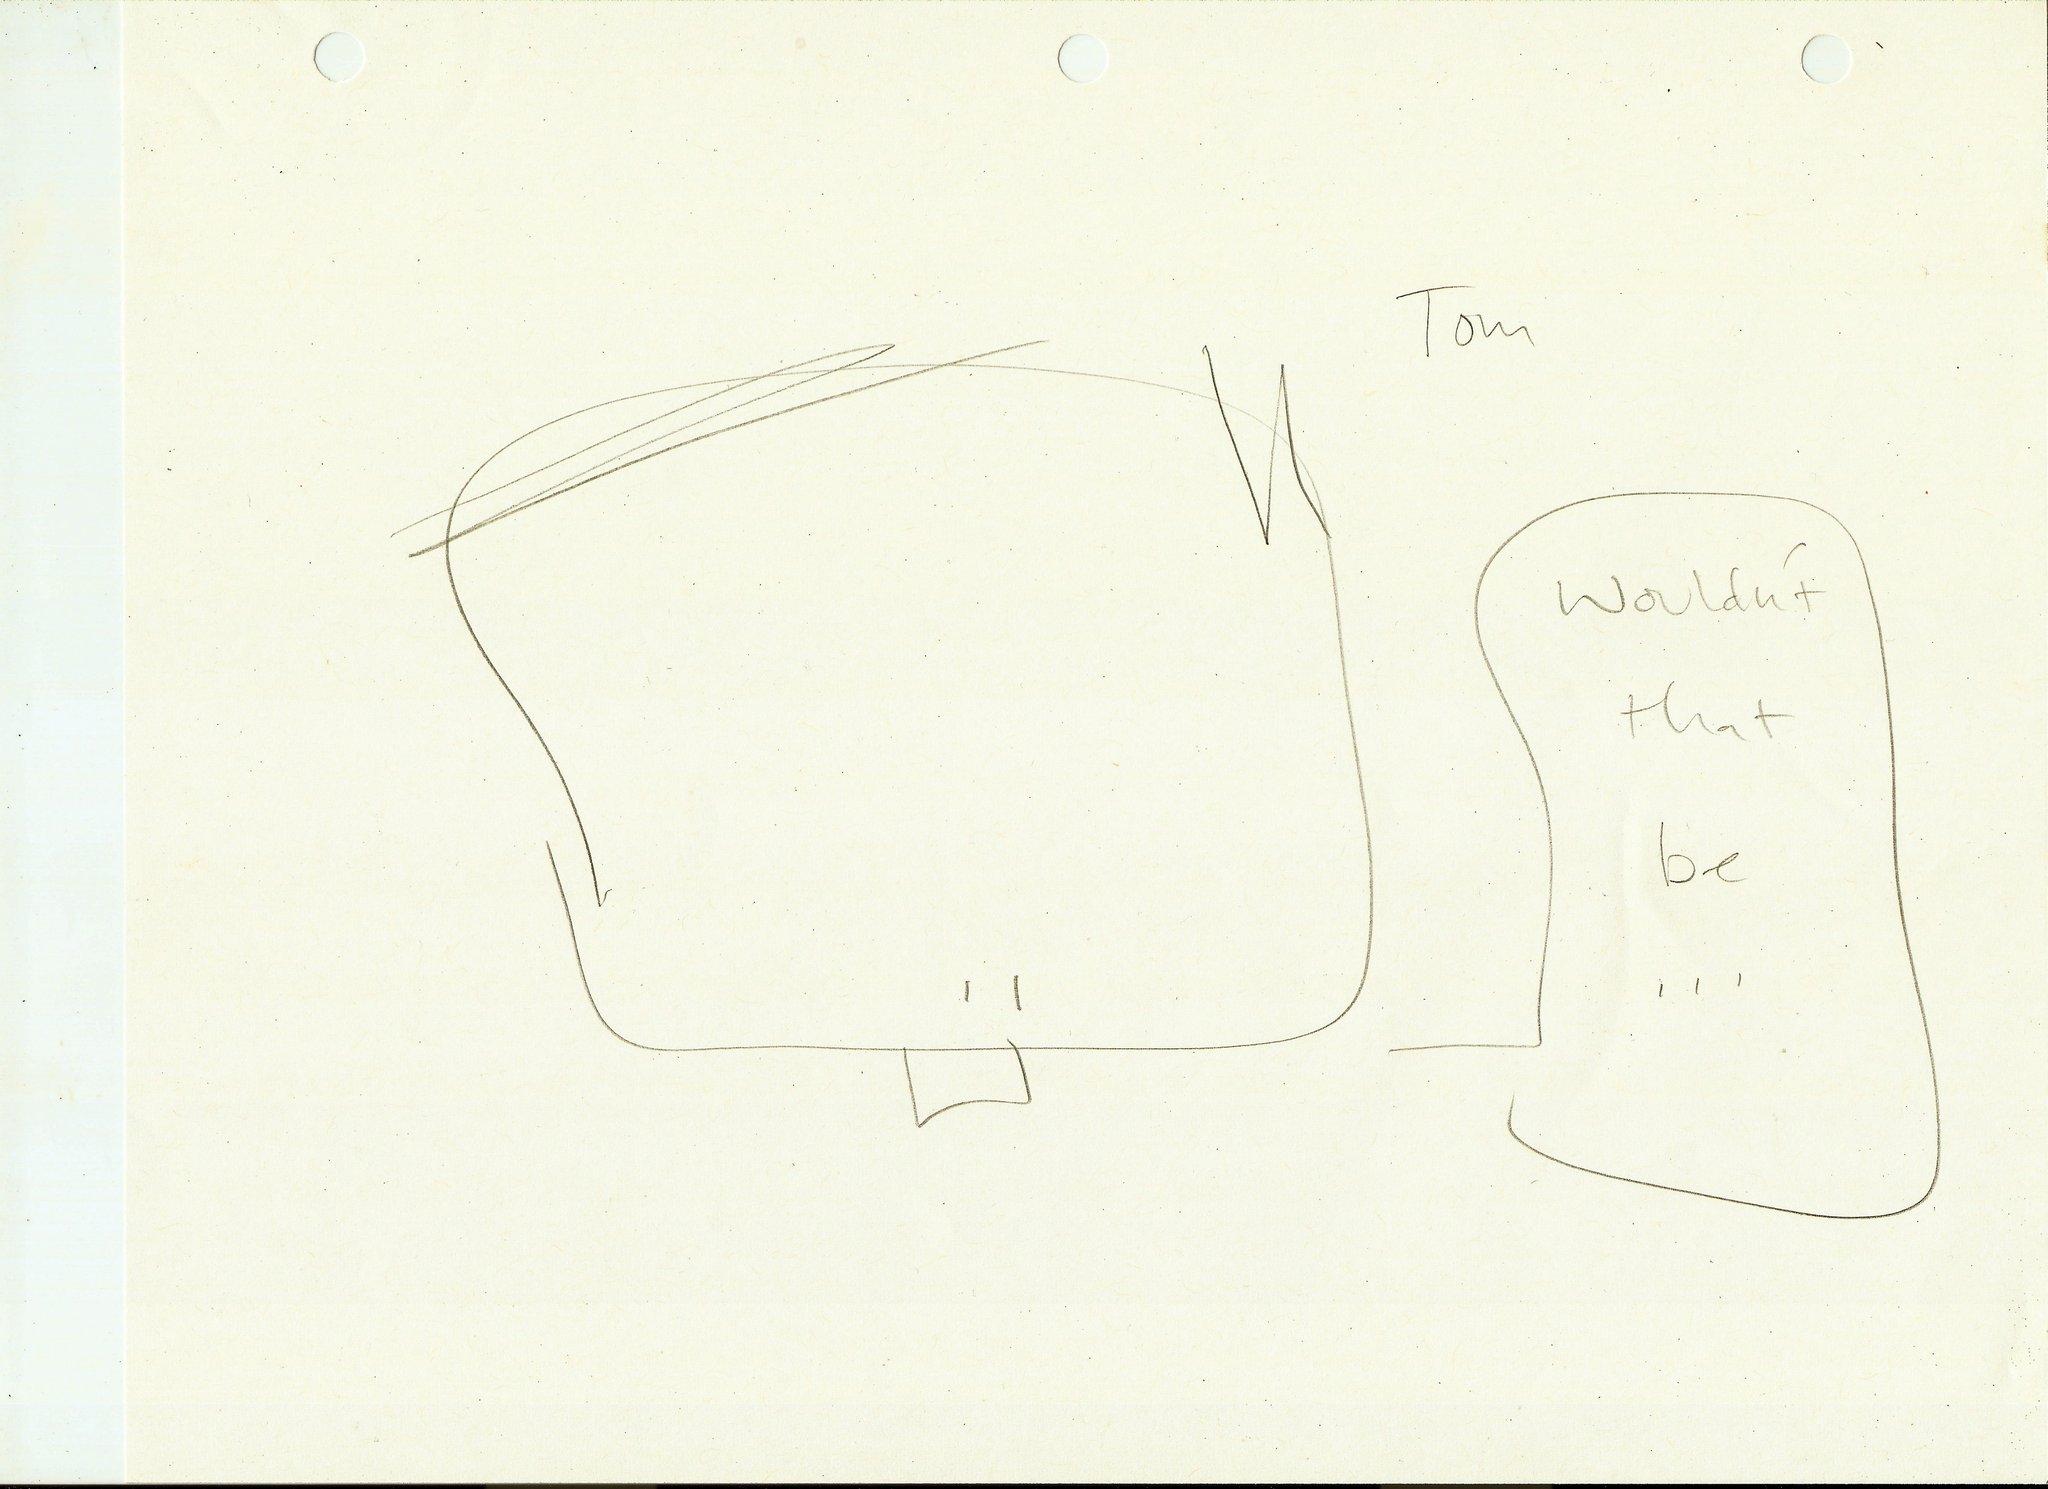 Tom
Wouldn't
that
be
...